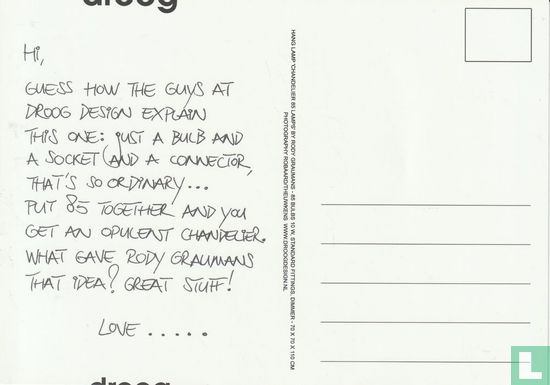 droog
Hi,
GUESS HOW THE GUYS AT
DROOG DESIGN EXPLAIN
THIS ONE: JUST A BULB AND
A SOCKET (AND A CONNECTOR,
THAT'S SO ORDINARY...
PUT 85 TOGETHER AND YOU
GET AN OPULENT CHANDELIER.
WHAT GAVE RODY GRAUMANS
THAT IDEA? GREAT STUFF!
LOVE .....
droog
HANG LAMP 'CHANDELIER 85 LAMPS' BY RODY GRAUMANS - 85 BULBS 10 W, STANDARD FITTINGS, DIMMER - 70 X 70 X 110 CM
PHOTOGRAPHY ROBAARD/THEUWKENS WWW.DROOGDESIGN.NL